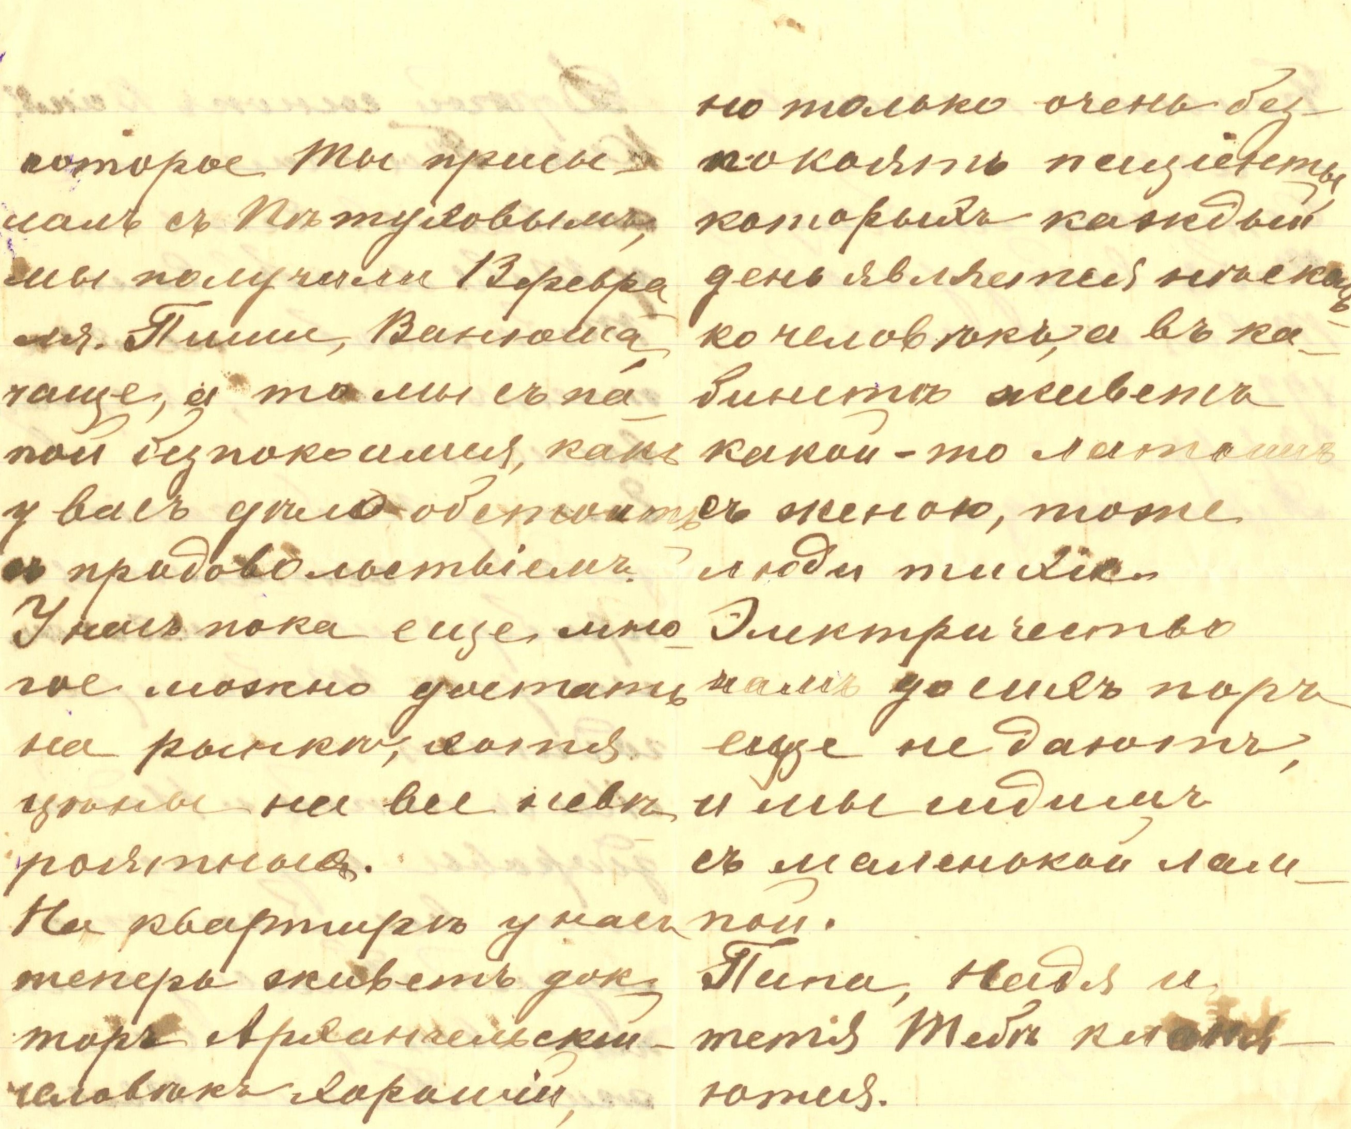 которое Ты присы-
лалъ съ Пѣтуховымъ,
мы получили 13 февра
ля. Пиши, Ванюша
чаще, а то мы съ па-
пой безпокоимся, какъ
у васъ дѣло обстоитъ
съ продовольствіемъ.
У насъ пока еще мно-
гое можно достать
на рынкѣ, хотя
цѣны на все невѣ
роятныя.
На квартирѣ у насъ
теперь живетъ док-
торъ Архангельскій -
человѣкъ хорошій,
но только очень без-
покоятъ паціенты,
которыхъ каждый
день является нѣсколь-
ко человѣкъ, а въ ка-
бинетѣ живетъ
какой-то латышъ
съ женою, тоже
люди тихіе.
Электричество
намъ до сихъ поръ
еще не даютъ,
и мы сидимъ
съ маленькой лам-
пой.
Папа, Надя и
тетя Тебѣ кланя-
ются.